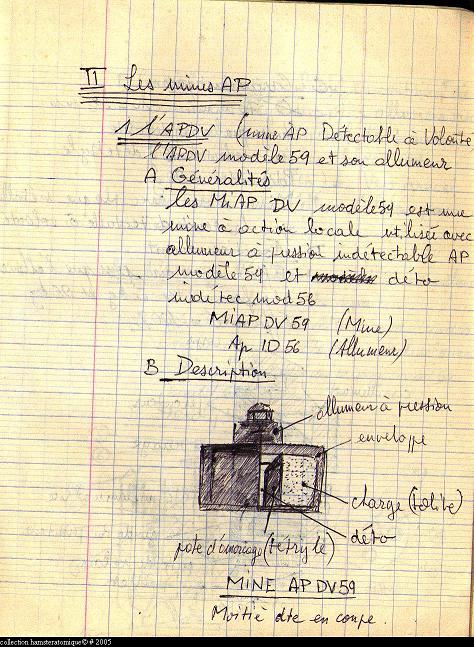 II
Les mines AP
1 l'APDV (mine AP Détectable à Volonté
l'APDV modèle 59 et son allumeur
A Généralités
Les Mi AP DV modèle 59 est une
mine à action locale utilisée avec
allumeur à pression indétectable AP
modèle 59 et déto
indétec mod 56
Mi AP DV 59 (Mine)
Ap ID 56 (Allumeur)
B Description
allumeur à pression
enveloppe
charge (tolite)
déto
pote d'amorçage (tétryle)
MINE AP DV 59
Moitié dte en coupe.
collection.hamsteratomique© # 2005